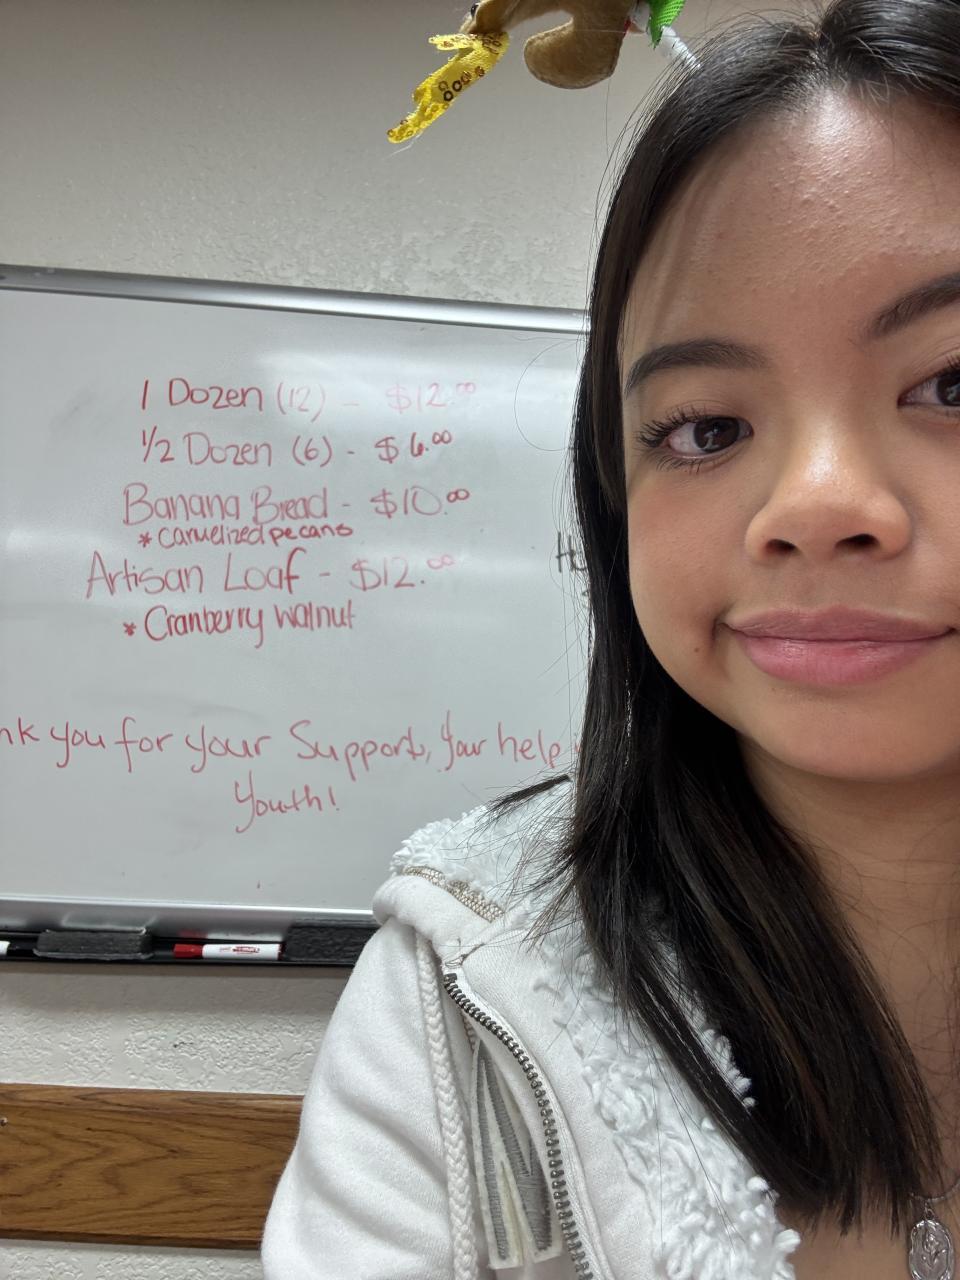 1 Dozen (12) - $12.00
1/2 Dozen (6) - $6.00
Banana Bread - $10.00
* Caruelized pecans
Artisan Loaf - $12.00
* Cranberry Walnut
nk you for your Support, your help
Youth!